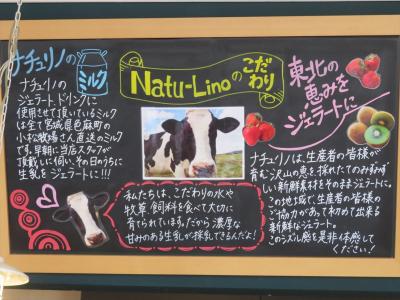 ナチュリノの
ミルク
ナチュリノの
ジェラート、ドリンクに
使用させて頂いているミルク
は全て宮城県色麻町の
小松牧場さん直送のミルク
です。早朝に当店スタッフが
頂戴しに伺い、その日のうちに
生乳をジェラートに!!!
Natu-Linoのこだわり
私たちは、こだわりの水や
牧草、飼料を食べて大切に
育てられています。だから濃厚な
甘みのある生乳が採乳できるんだよ!
東北の
恵みを
ジェラートに
ナチュリノは、生産者の皆様が
育む沢山の恵を、採れたてのみずみず
しい新鮮素材をそのままジェラートに。
この地の、生産者の皆様の
ご協力があって初めて出来る
新鮮なジェラート。
このシズル感を是非体感して
ください!